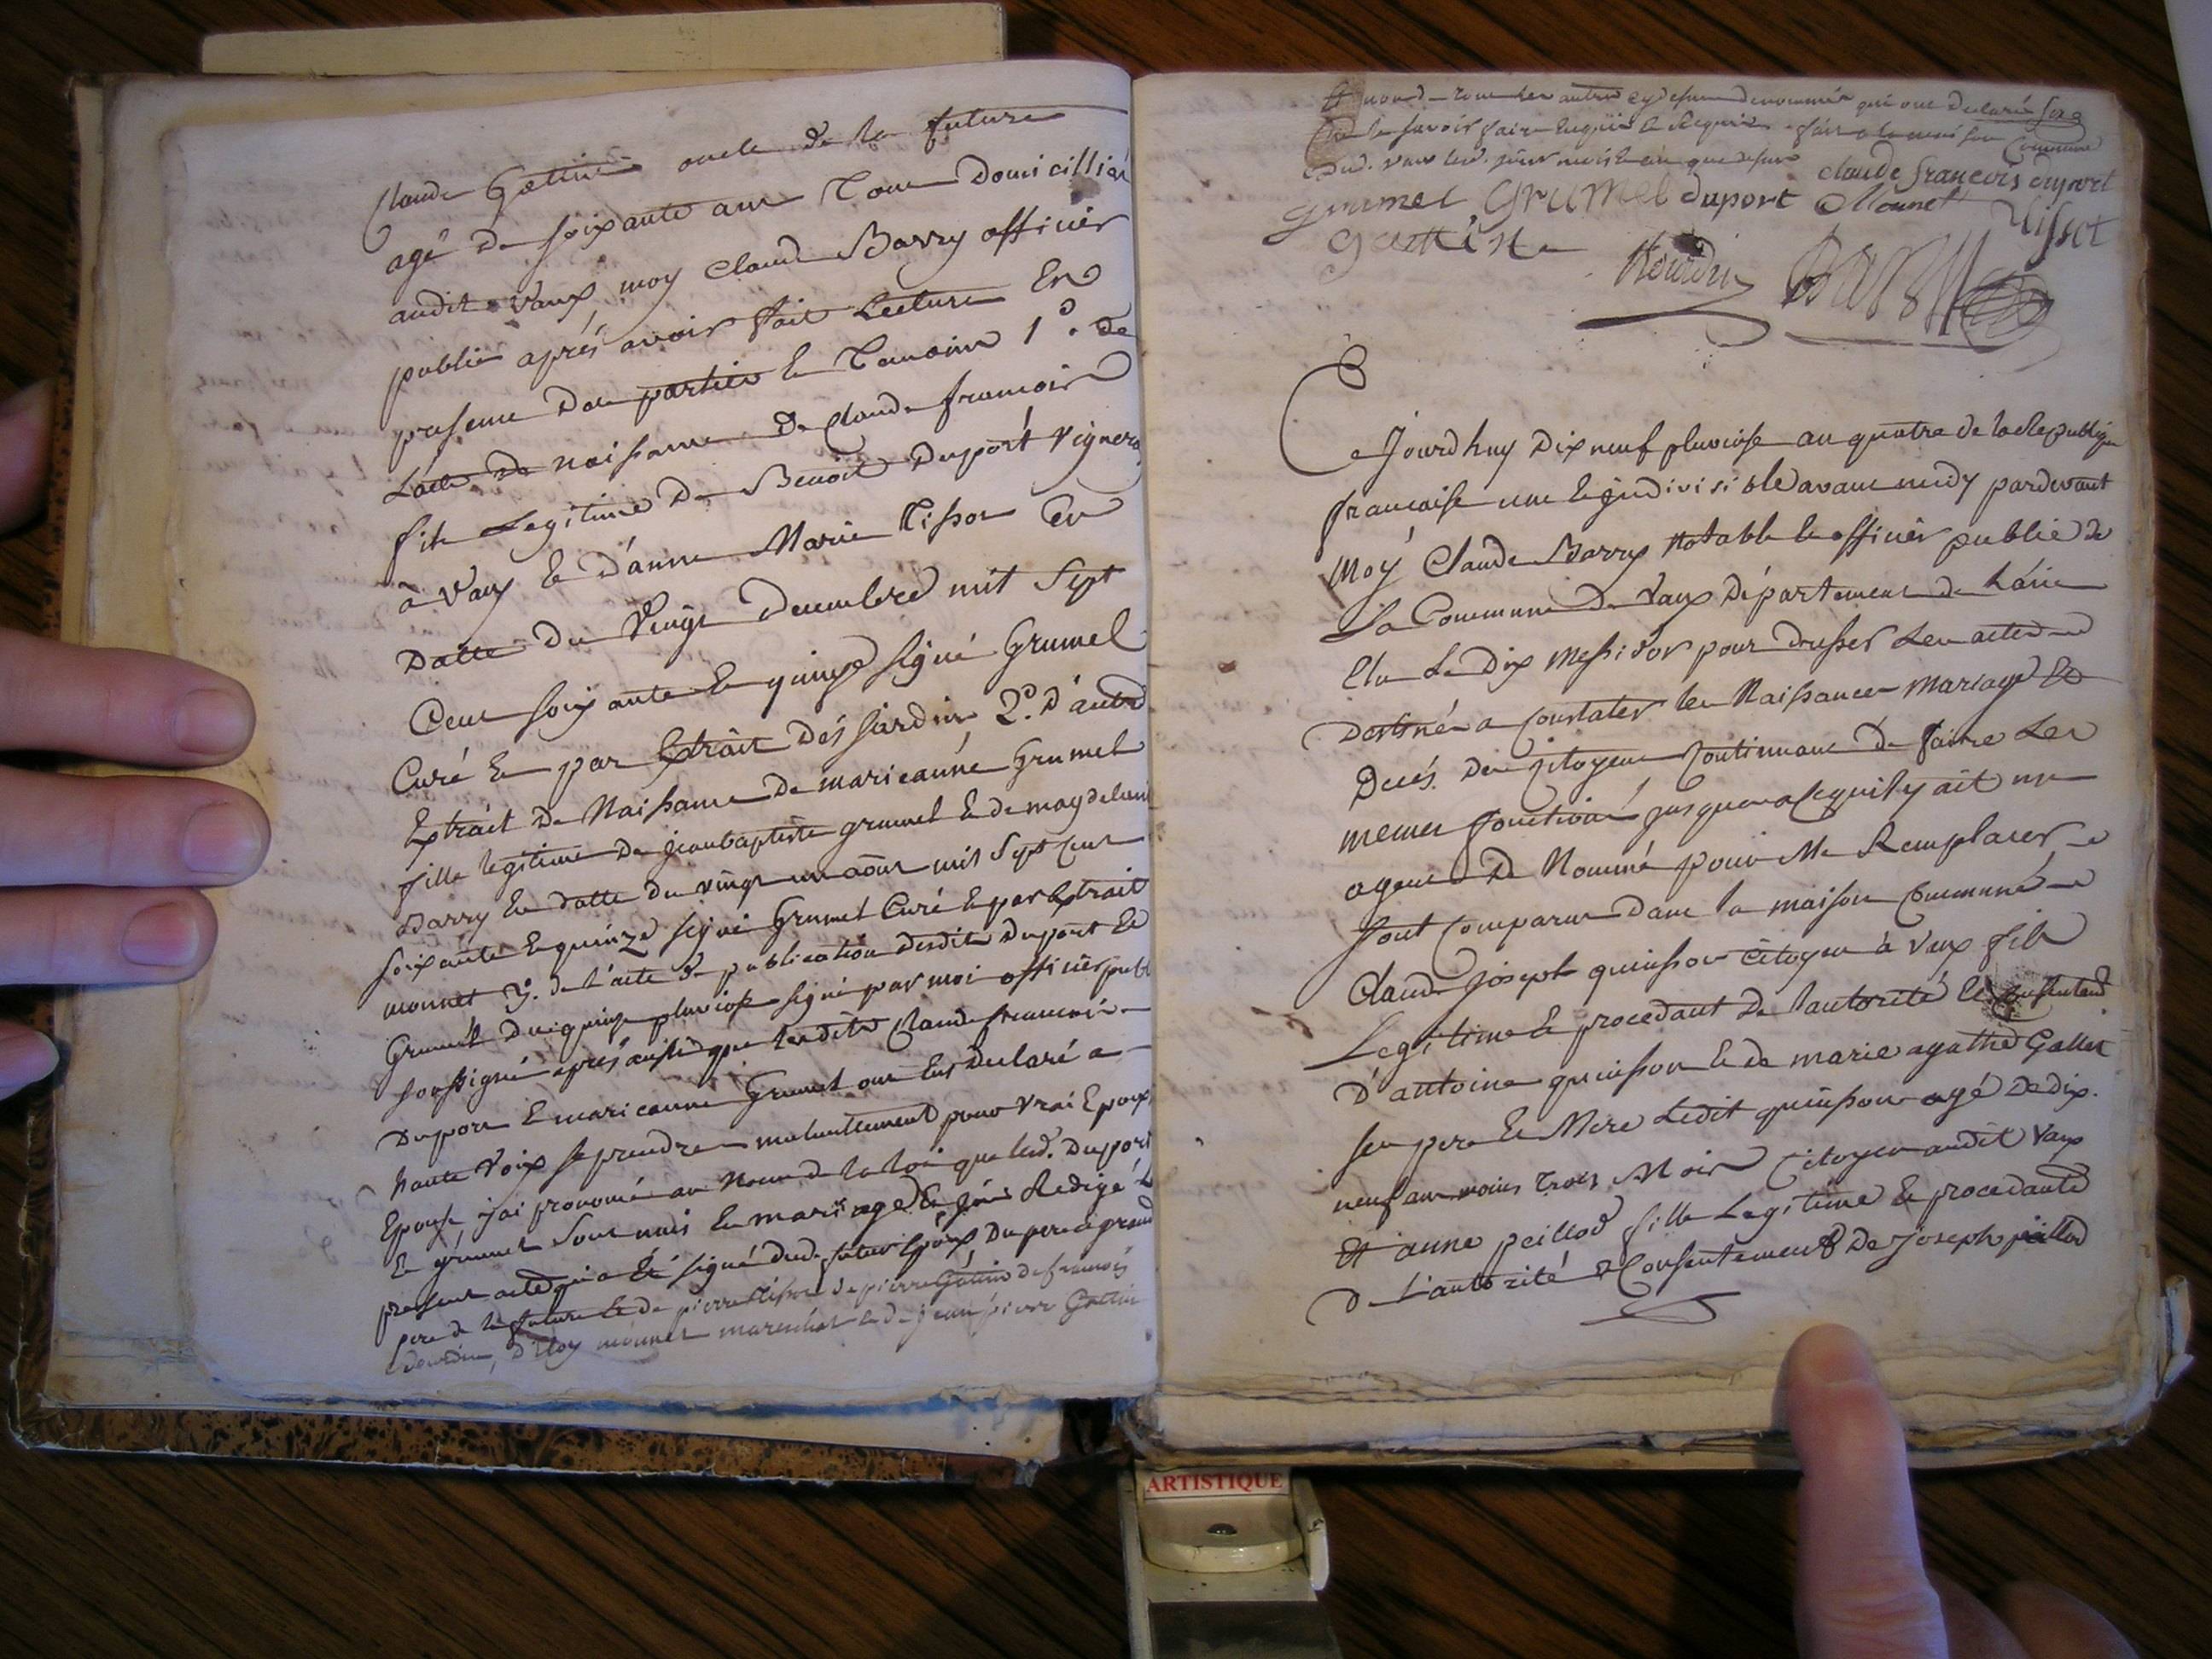 Claude Gottin oncle de la future
agé de soixante ans tous domicilliés
audit Vaux, moy Claude Barry officier
public aprés avoir fait Lecture En
presence des parties Et temoins 1° de
Lacte de naissance de Claude francois
fils Legitime De Benoit Duport vigneron
à Vaux Et d'anne Marie Tissot En
Datte Du Vingt Decembre mil Sept
Cent soixante Et quinze signé Grumel
Curé Et par Extrait Des jardin 2° D'autre
Extrait De Naissance De marieanne Grumel
fille legitime De jeanbaptiste grumel Et de magdelaine
Barry En datte du vingt un aout mil Sept Cent
soixante Et quinze signé Grumel Curé Et par Extrait
monnet 3°. de L'acte De publication desdits Duport Et
Grumel Du quinze pluviose signé par moi officier publ
soussigné aprés aussi que lesdits Claude francois
Duport Et marieanne Grumel ont Eus Declaré a
haute Voix se prendre mutuellement pour vrai Epoux
Epouse j'ai prononcé au Nom de la loi que lesd. Duport
Et grumel Sont unis En mariage Et j'ai Redigé L
present acte qui a Eté signé desd. futurs Epoux Du pere grand
pere de la future Et de pierre Tisson de pierre Gottin de francois
Bourdin, d'Eloy monnet marechal Et de jean pierre Gottin
Et non de tous les autres cy dessus denommés qui ont declaré
ne le savoir faire Enquis Et Requis fait a la maison Commune
dud. Vaux lesd. jour mois Et an que dessus Claude francois duport
grumel Grumel duport Monnet
Tissot
gottin
Bourdin Barry
Ce Jourdhuy Dix neuf pluviose an quatre de la Republique
francaise une Et indivisible avant midy pardevant
Moy Claude Barry Notable Et officier public de
La Commune De Vaux Département de Lain
Elu Le Dix Messidor pour dresser Les actes
Destinés a constater les Naissances Mariage Et
Decés. Des Citoyens Continuant De faire Les
memes fonctions jusquera Cequily ait un
agent De Nommé pour Me Remplacer
Sont Comparus Dans la maison Commune
Claude joseph quinson Citoyen à Vaux fils
Legitime Et procedant De lautorité Et Consentement
D'antoine quinson Et de marie agathe Gallet
ses pere Et Mere Ledit quinson agé De dix
neuf ans moins trois Mois Citoyen audit Vaux
Et anne peillod fille Legitime Et procedante
De L'autorité Et Consentement De joseph peillod
ARTISTIQUE